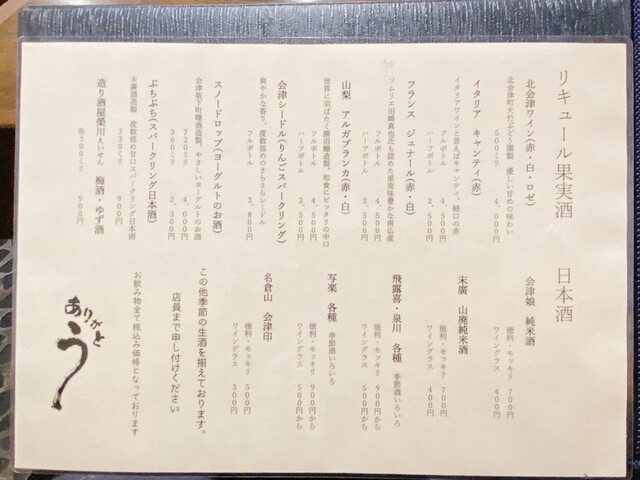 リキュール果実酒
北会津ワイン(赤・白・ロゼ)
北会津町大竹ぶどう園製　優しい甘めの味わい
500ミリ　4,000円
イタリア　キャンティ(赤)
イタリアワインと言えばキャンティ。軽口の赤
フルボトル　4,500円
ハーフボトル　2,500円
フランス　ジュナール(赤・白)
ソムリエ田崎真也氏も認めた果実味豊かな南仏産
フルボトル　4,500円
ハーフボトル　2,500円
山梨　アルガブランカ(赤・白)
世界に羽ばたく勝沼醸造製。和食にピッタリの中口
フルボトル　4,500円
ハーフボトル　2,500円
会津シードル(りんごスパークリング)
爽やかな香り、度数低めのさらさらシードル
フルボトル　3,800円
スノードロップ(ヨーグルトのお酒)
会津坂下町曙酒造製。やさしいヨーグルトのお酒
720ミリ　4,000円
360ミリ　2,300円
ぷちぷち(スパークリング日本酒)
末廣酒造製　度数低め甘口スパークリング日本酒
330ミリ　900円
造り酒屋榮川えいせん　梅酒・ゆず酒
各300ミリ　900円
日本酒
会津娘　純米酒
徳利・モッキリ　700円
ワイングラス　400円
末廣　山廃純米酒
徳利・モッキリ　700円
ワイングラス　400円
飛露喜・泉川　各種　季節酒いろいろ
徳利・モッキリ　900円から
ワイングラス　500円から
写楽　各種　季節酒いろいろ
徳利・モッキリ　900円から
ワイングラス　500円から
名倉山　会津印
徳利・モッキリ　500円
ワイングラス　300円
この他季節の生酒を揃えております。
店員まで申し付けください
お飲み物全て税込み価格となっております
ありがとう